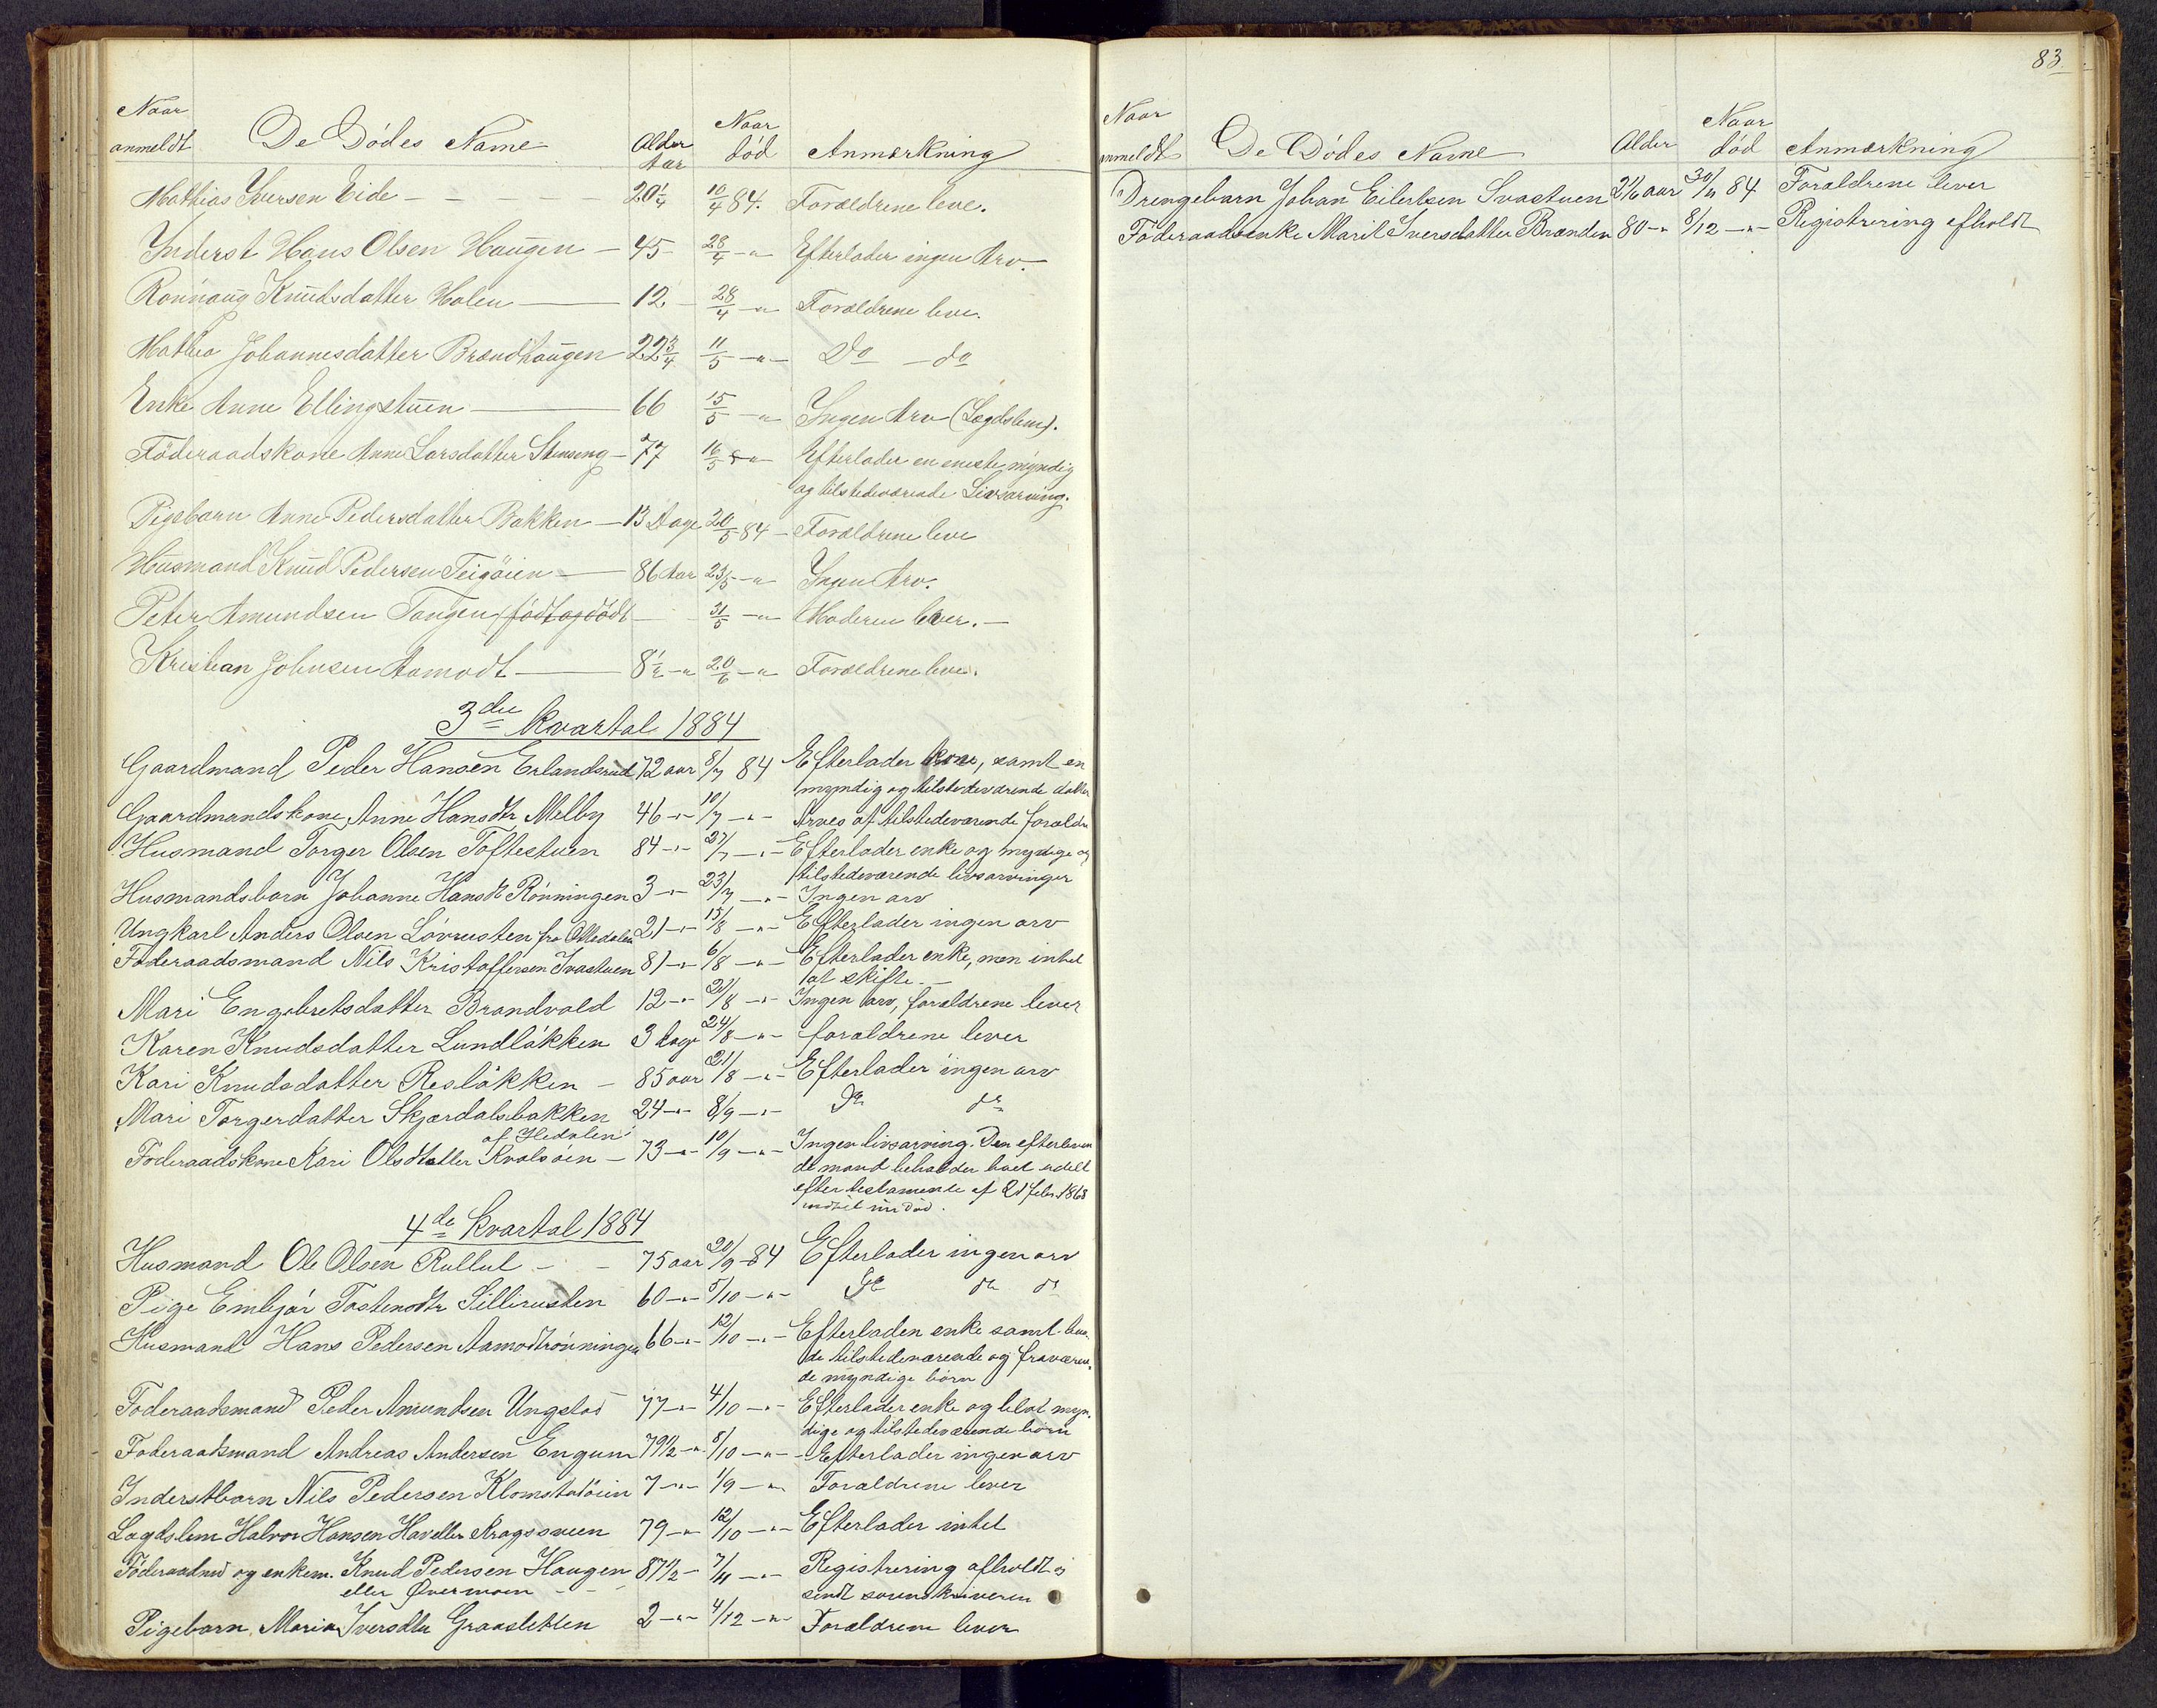 Naar anmeldt De Dödes Name Alder Aar Naar död Anmærkning
Mathias Iversen Eide - - - - - 20 1/4 10/4 84. Forældrene leve.
Inderst Hans Olsen Haugen - 45 - 28/4 -"- Efterlader ingen Arv.
Rønnaug Knudsdatter Holen - 12 - 28/4 -"- Forældrene leve.
Mathea Johannesdatter Brændhaugen 22 3/4 11/5 -"- Do - do
Enke Anne Ellingstuen - 66 15/5 -"- Ingen Arv (Lægdslem).
Föderaadskone Anne Larsdatter Stenseng - 77 16/5 -"- Efterlader en eneste myndig
og tilstedeværende Livsarving.
Pigebarn Anne Pedersdatter Bakken - 13 Dage 20/5 84 - Forældrene leve
Husmand Knud Pedersen Teigöien - 86 Aar 23/5 -"- Ingen Arv.
Peter Amundsen Tangen, födt og död - 31/5 -"- Moderen lever. -
Kristian Johnsen Aamodt - 8 1/2 -"- 20/6 -"- Forældrene leve.
3die Kvartal 1884
Gaardmand Peder Hansen Erlandsrud 72 aar 8/7 84 Efterlader kone, samt en
myndig og tilstedeværende datter
Gaardmandskone Anne Hansdtr Melby 46 -"- 10/7 -"- Arves af tilstedeværende forældre
Husmand Torger Olsen Toftestuen 84 -"- 27/7 -"- Efterlader enke og myndige og
tilstedeværende livsarvinger
Husmandsbarn Johanne Hansdt Rönningen 3 -"- 23/7 -"- Ingen arv
Ungkarl Anders Olsen Lövrusten fra 21 -"- 15/8 -"- Efterlader ingen arv
Föderaadsmand Nils Kristoffersen Svastuen 81 -"- 6/8 -"- Efterlader enke, men intet
at skifte -
Mari Engebretsdatter Brandvold 12 -"- 21/8 -"- Ingen arv, forældrene lever
Karen Knudsdatter Lundläkken 3 dage 24/8 -"- forældrene lever
Kari Knudsdatter Resläkken - 85 aar 21/8 -"- Efterlader ingen arv
Mari Torgersdatter Skjærdalsbakken 24 -"- 8/9 -"- Do do
af Hedalen
Föderaadskone Kari Olsdtatter Kvalsöien - 73 -"- 10/9 -"- Ingen livsarving. Den efterleven
de mand beholder boet udelt
efter testamente af 21 febr. 1868
4de Kvartal 1884
Husmand Ole Olsen Rullul - - 75 aar 20/9 84 Efterlader ingen arv
Pige Embjör Tostensdtr Sillirusten 60 -"- 5/10 -"- Do do do
Husmand Hans Pedersen Aamodtrönningen 66 -"- 12/10 -"- Efterladen enke samt baa-
de tilstedeværende og fraværen-
de myndige börn
Föderaadsmand Peder Amundsen Ungstad 77 -"- 4/10 -"- Efterlader enke og lut myn-
dige og tilstedeværende börn
Föderaadsmand Andreas Andersen Engum 79 1/2 -"- 8/10 -"- Efterlader ingen arv
Inderstbarn Nils Pedersen Klomstadöien 7 -"- 1/9 -"- Forældrene lever
Lægdslem Halvor Hansen Havellen Kragsveen 79 -"- 12/10 -"- Efterlader intet
Föderaadmd og enkem. Knud Pedersen Haugen 87 1/2 - 7/11 -"- Registrering afholdt og
eller Övermoen - - sendt sorenskriveren
Pigebarn Maria Iversdtr Graasletten 2 -"- 4/12 -"- Forældrene lever
83.
Naar anmeldt De Dödes Name Alder Naar död Anmærkning
Drengebarn Johan Eilertsen Svastuen 2 1/6 aar 30/11 84 Forældrene lever
Föderaadsenke Marit Iversdatter Brænden 80 -"- 8/12 -"- Registrering afholdt